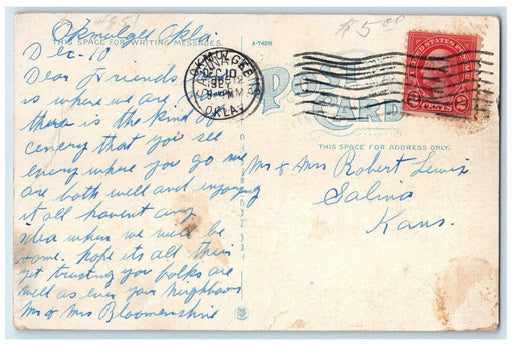 #951
$5.00
Okmulgee Okla.
THIS SPACE FOR WRITING MESSAGES.
A-74216
Dec-10
Dear Friends
is where we are
thera is the kind of
cenery that you see
every where you go we
are both well and enjoying
it all havent any
idea where we will be
home. hope its all their
yet trusting you folks are
well as ever your Neighbours
Mr & Mrs Bloomenshine
OKMULGEE
DEC 10
9- PM
OKLA.
UNITED STATES POSTAGE
2 CENTS 2
POST
CARD
THIS SPACE FOR ADDRESS ONLY.
Mr & Mrs Robert Lewis
Salina
Kans.